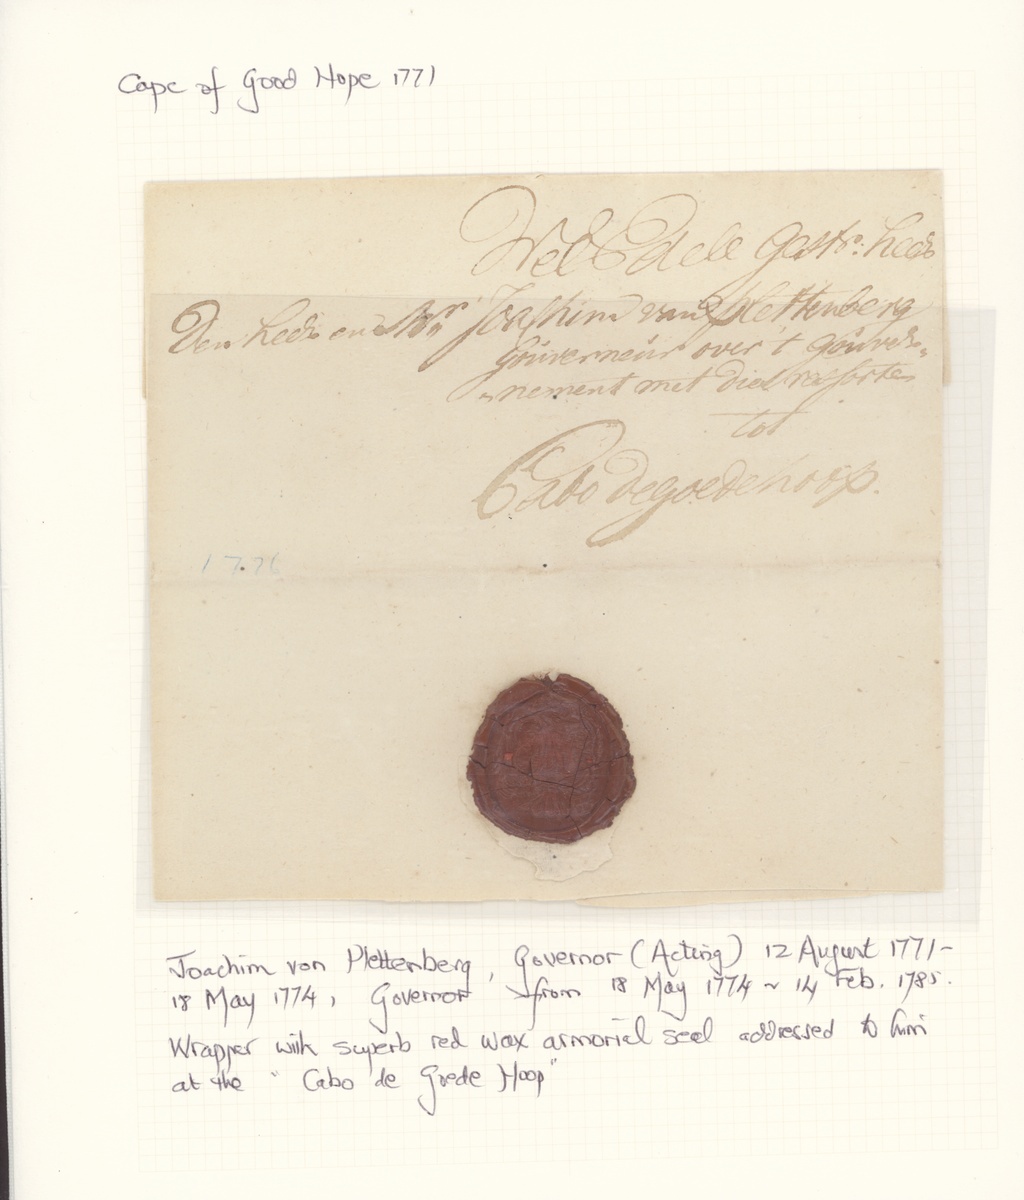 Cape of Good Hope 1771
Wel Edele Gestr: heer
Den heer en Mr Joachim van Plettenberg
Gouverneur over 't Gouver-
nement met dies ressorte
tot
Cabo de goede hoop.
1776
Joachim von Plettenberg, Governor (Acting) 12 August 1771-
18 May 1774, Governor from 18 May 1774 ~ 14 Feb. 1785.
Wrapper with superb red wax armorial seal addressed to him
at the "Cabo de Goede Hoop"